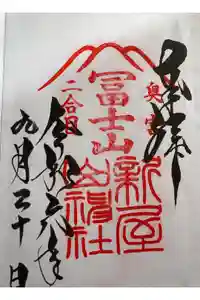 奉拝
奥宮
冨士山
新屋
山神社
二合目
令和六年
九月二十日